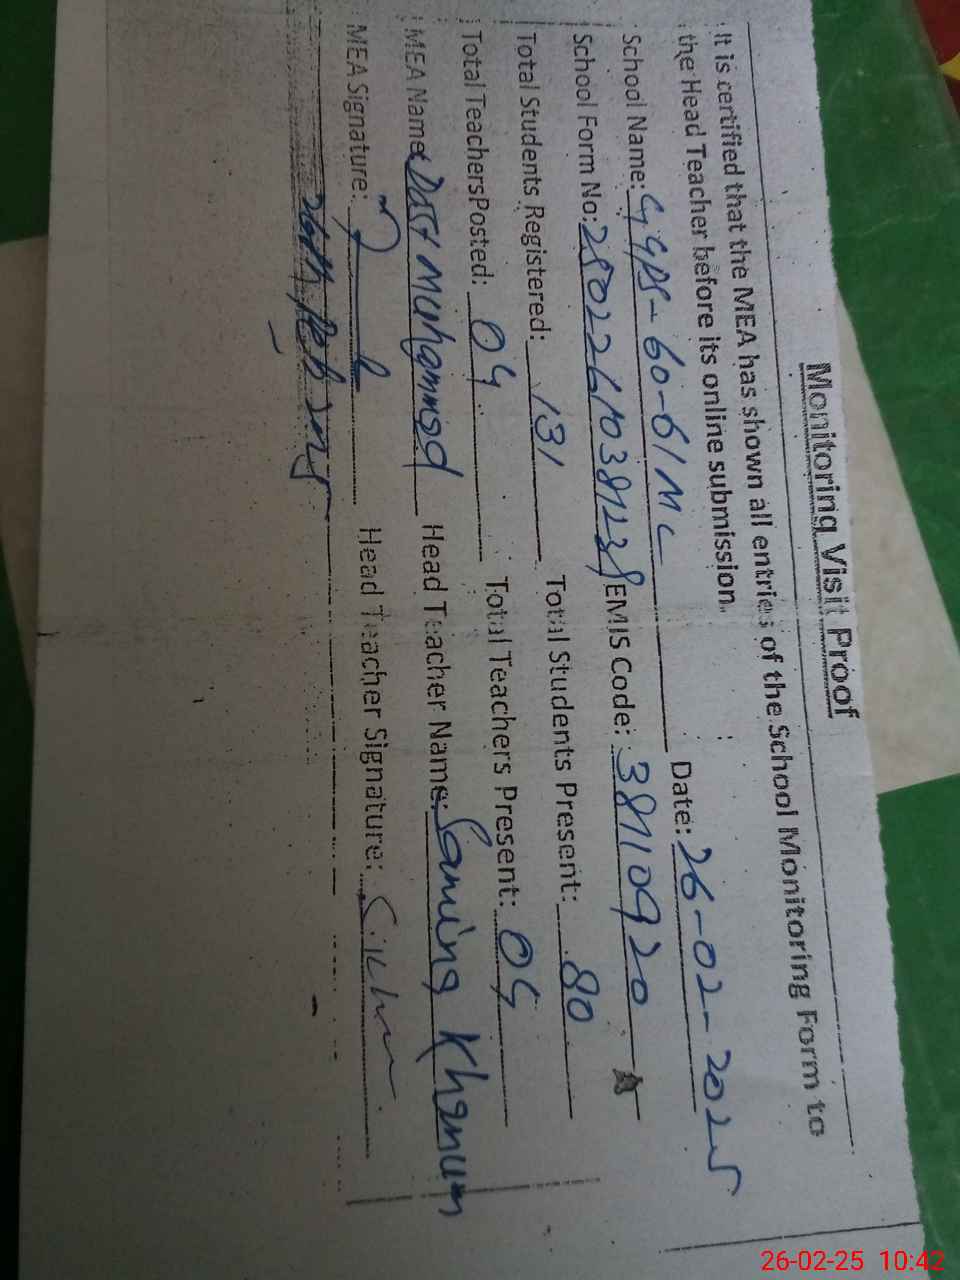 Monitoring Visit Proof
It is certified that the MEA has shown all entries of the School Monitoring Form to
the Head Teacher before its online submission.
School Name: GGPS-60-61 MC Date: 26-02-2025
School Form No: EMIS Code: 38110920
Total Students Registered: 131 Total Students Present: 80
Total Teachers Posted: 04 Total Teachers Present: 04
MEA Name: Dost Muhammad Head Teacher Name: Samina Khanum
MEA Signature: Head Teacher Signature:
26-02-25 10:42